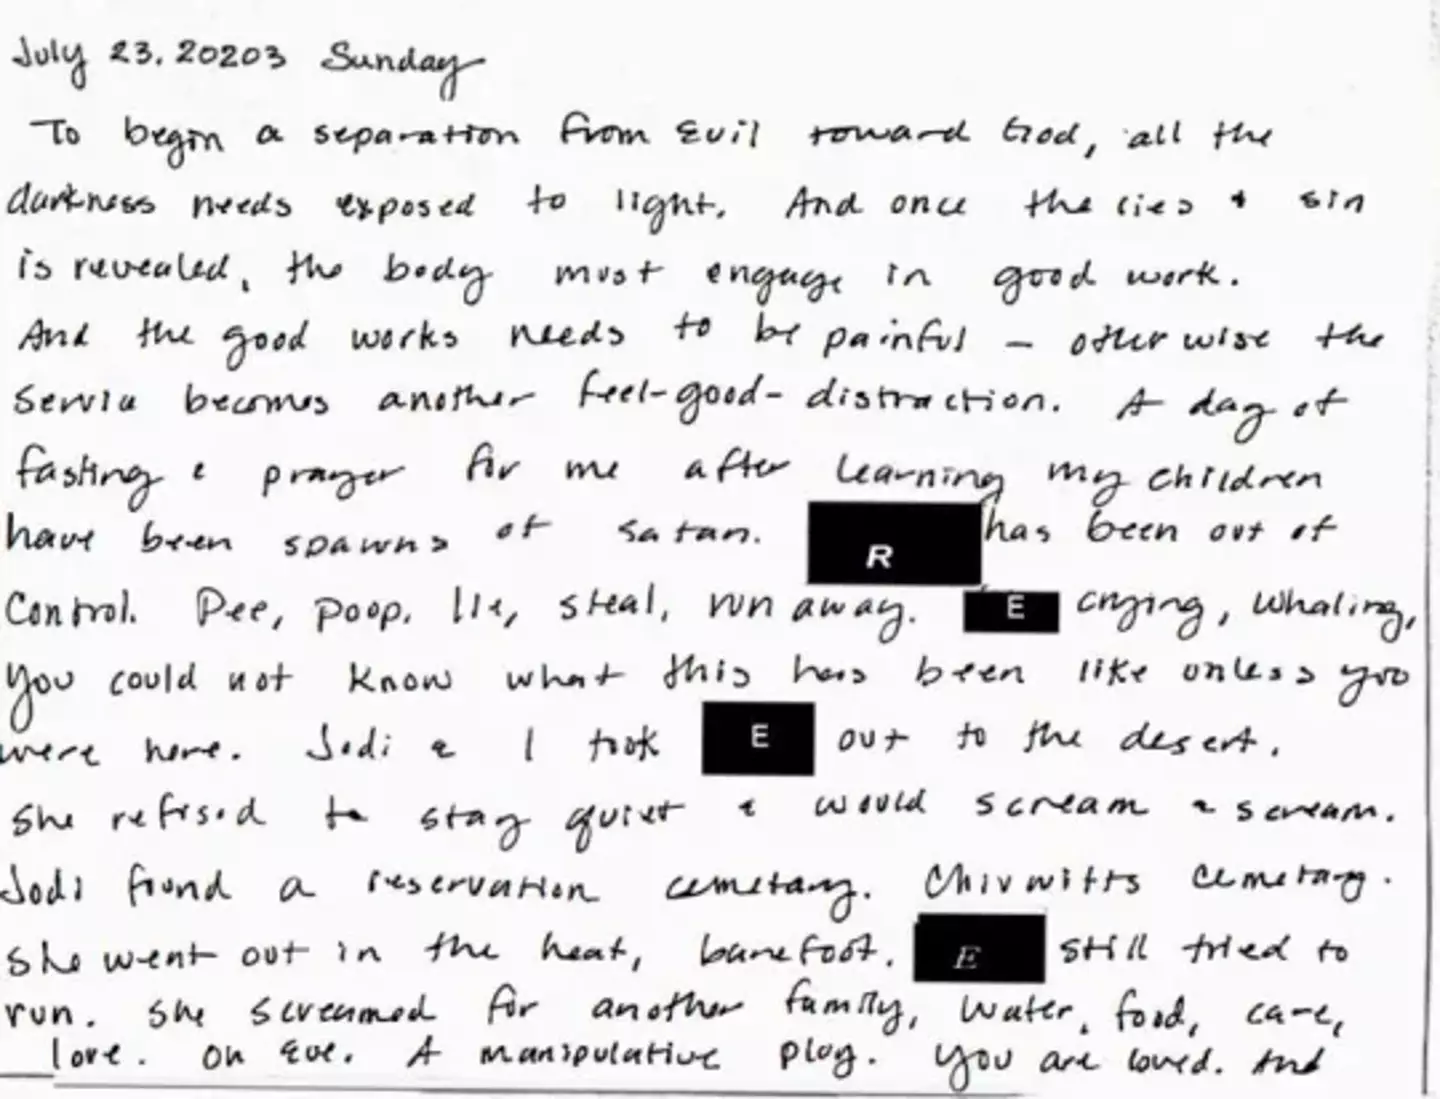 July 23. 20203 Sunday
To begin a separation from Evil toward God, all the
darkness needs exposed to light. And once the lies & sin
is revealed, the body must engage in good work.
And the good works needs to be painful – otherwise the
service becomes another feel-good-distraction. A day of
fasting & prayer for me after learning my children
have been spawns of satan. R has been out of
control. Pee, poop, lie, steal, run away. E crying, whaling,
you could not know what this has been like unless you
were here. Jodi & I took E out to the desert.
She refused to stay quiet & would scream & scream.
Jodi found a reservation cemetary. Chivwitts cemetary.
She went out in the heat, barefoot. E still tried to
run. She screamed for another family, water, food, care,
love. Oh Eve. A manipulative plog. You are loved. And